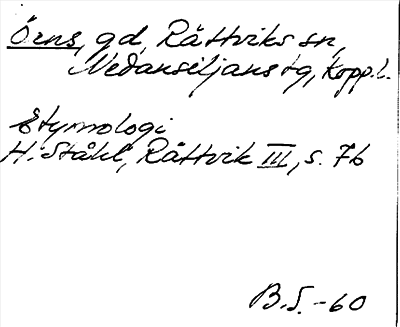 Örns, gd, Rättviks sn,
Nedansiljans tg, Kopp.l.
Etymologi
H. Ståhl, Rättvik III, s. 76
B.S.-60